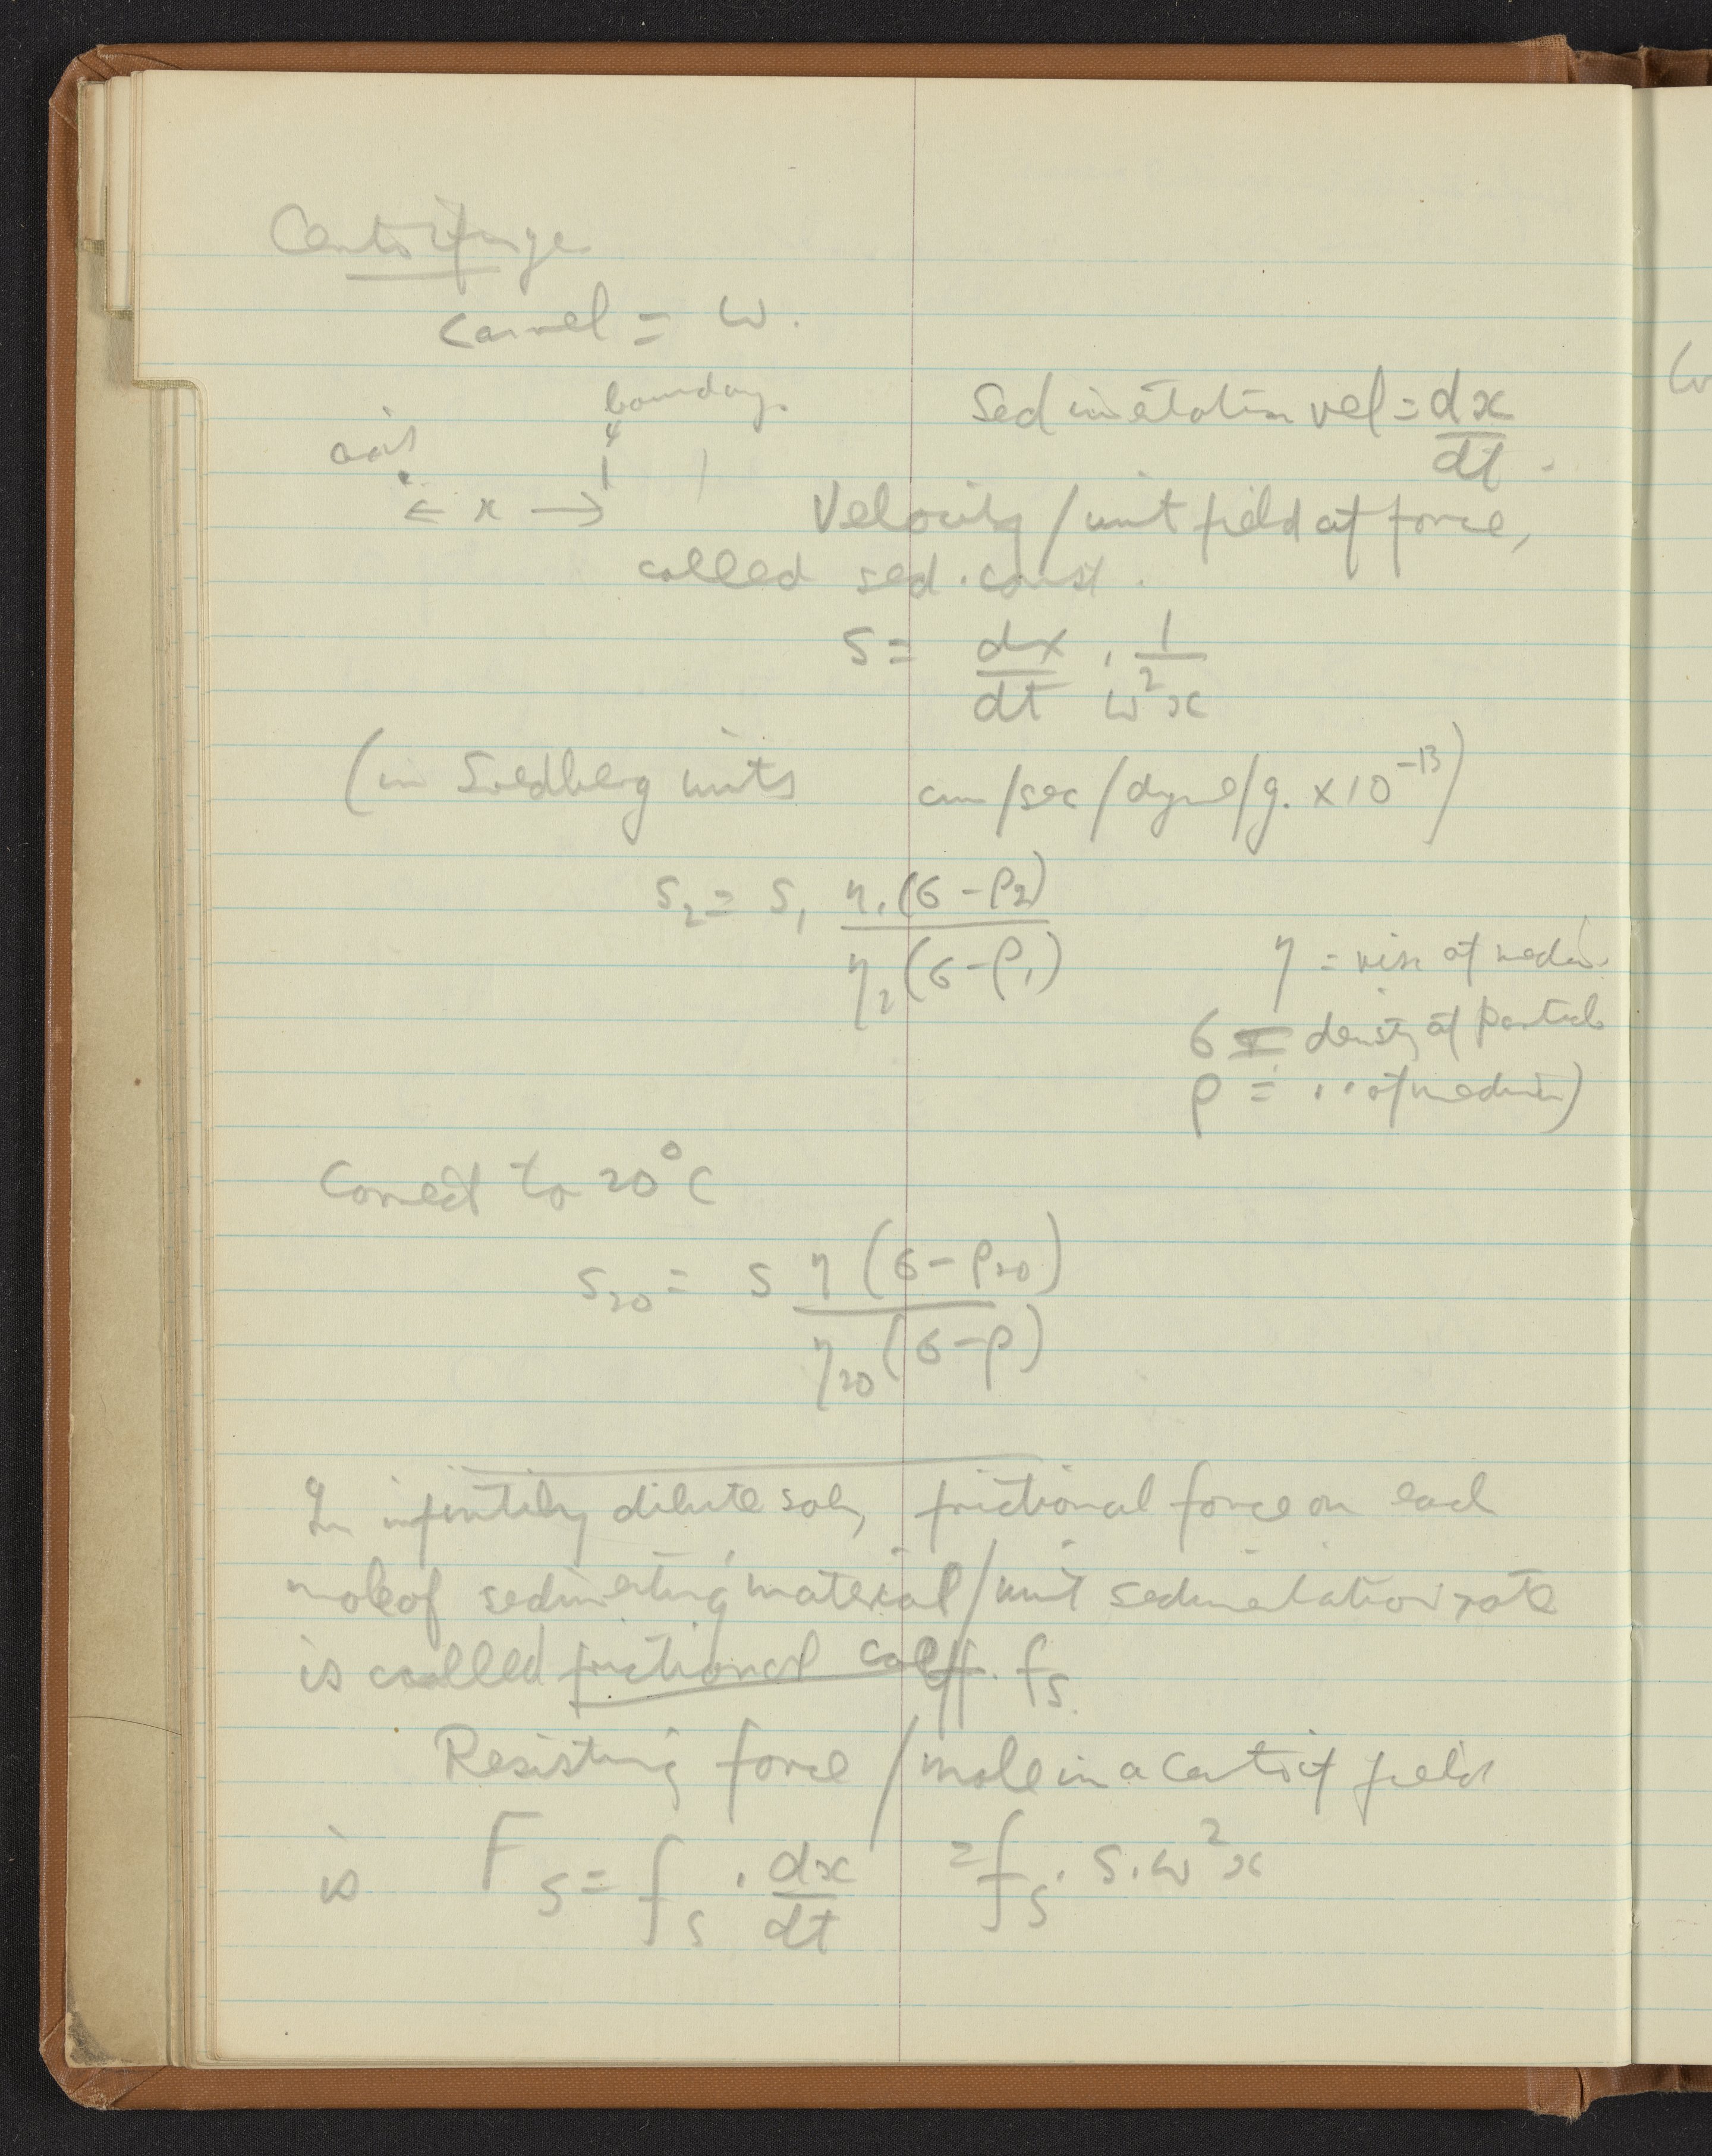 Centrifuge
= ω.
boundary
axis
← x →
Sedimentation vel = dx/dt.
Velocity / unit field of force,
called sed. const.
S = dx/dt · 1/ω²x
(in Svedberg units cm/sec/dyne/g. × 10⁻¹³)
S₂ = S₁ η₁(σ – ρ₂) / η₂(σ – ρ₁)
η = visc of medium
σ = density of particle
ρ = " of medium)
Correct to 20°C
S₂₀ = S η (σ – ρ₂₀) / η₂₀ (σ – ρ)
In infinitely dilute soln, frictional force on each
mole of sedimenting material / unit sedimentation rate
is called frictional coeff. fₛ
Resisting force / mole in a centrif field
is Fₛ = fₛ · dx/dt = fₛ · S · ω²x